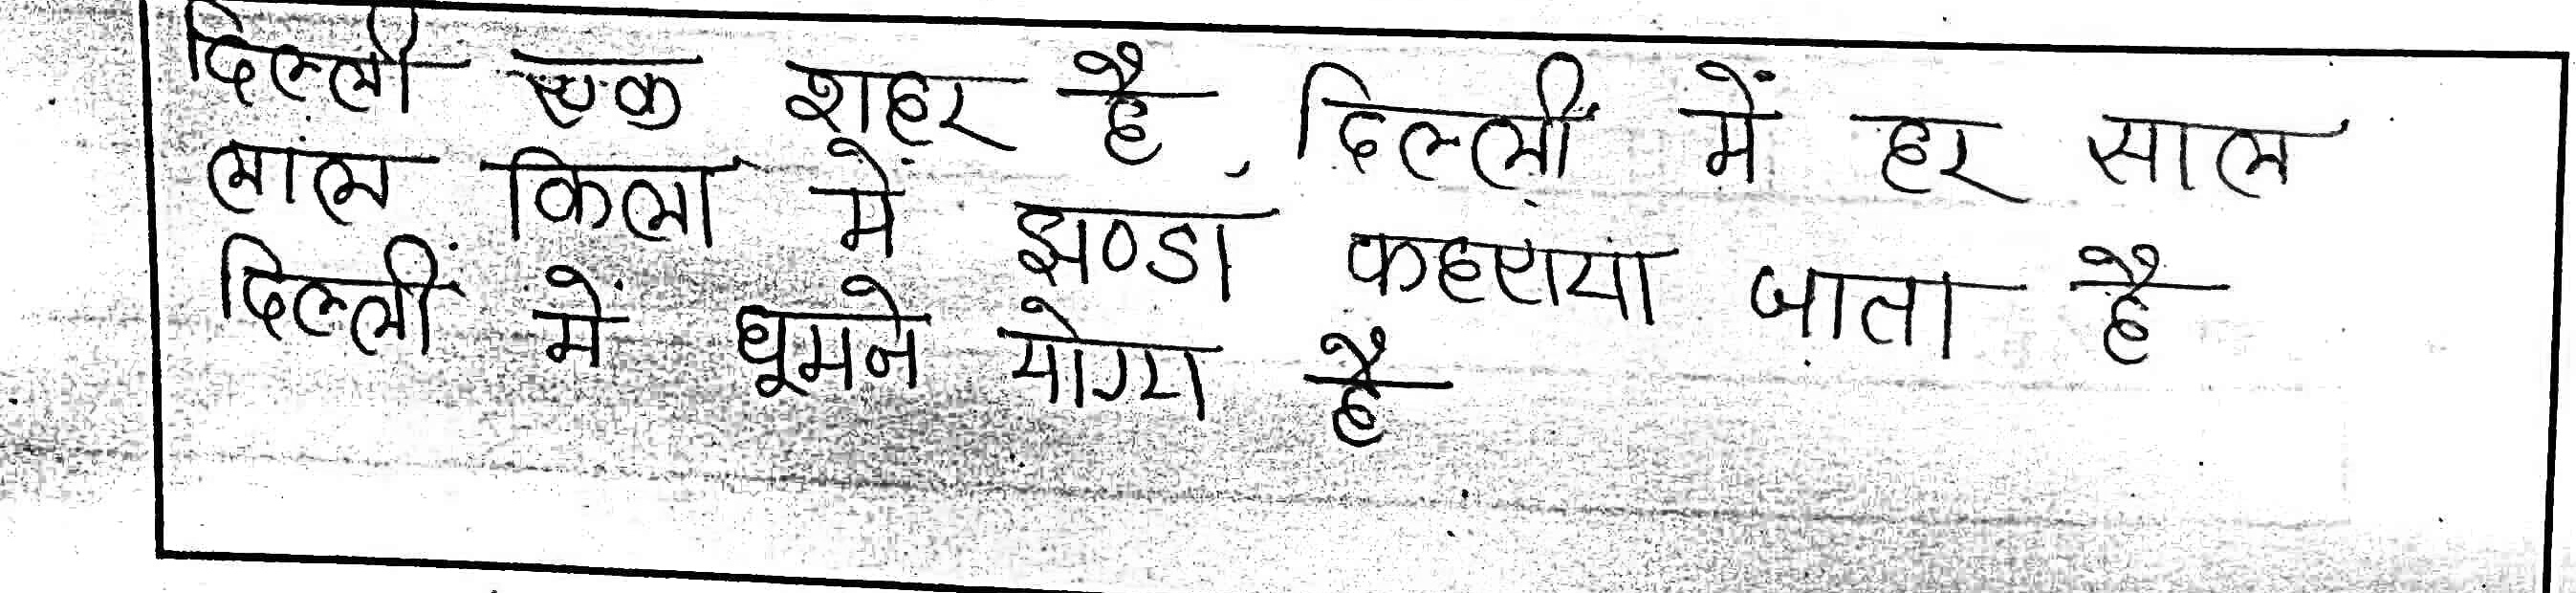 दिल्ली एक शहर है, दिल्ली में हर साल
लाल किला में झण्डा फहराया जाता है
दिल्ली में घूमने योग्य है